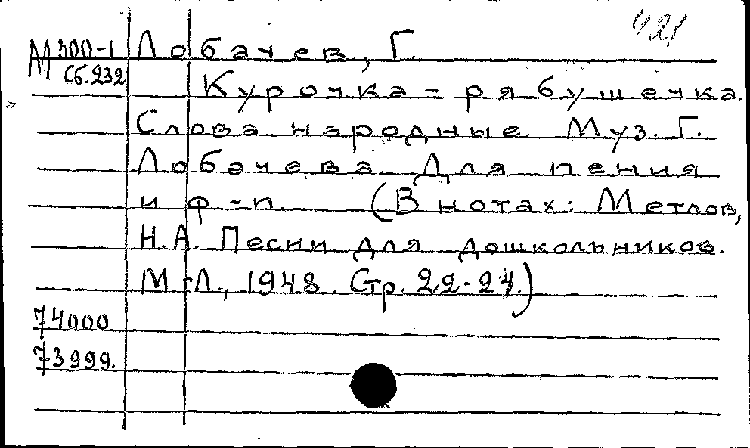 421
М 300-1 Лобачев, Г.
Сб.232 Курочка-рябушечка.
Слова народные Муз. Г.
Лобачева Для пения
и ф-п. (В нотах: Метлов,
Н.А. Песни для дошкольников.
М-Л., 1948. Стр. 22-24.)
74000
73999.